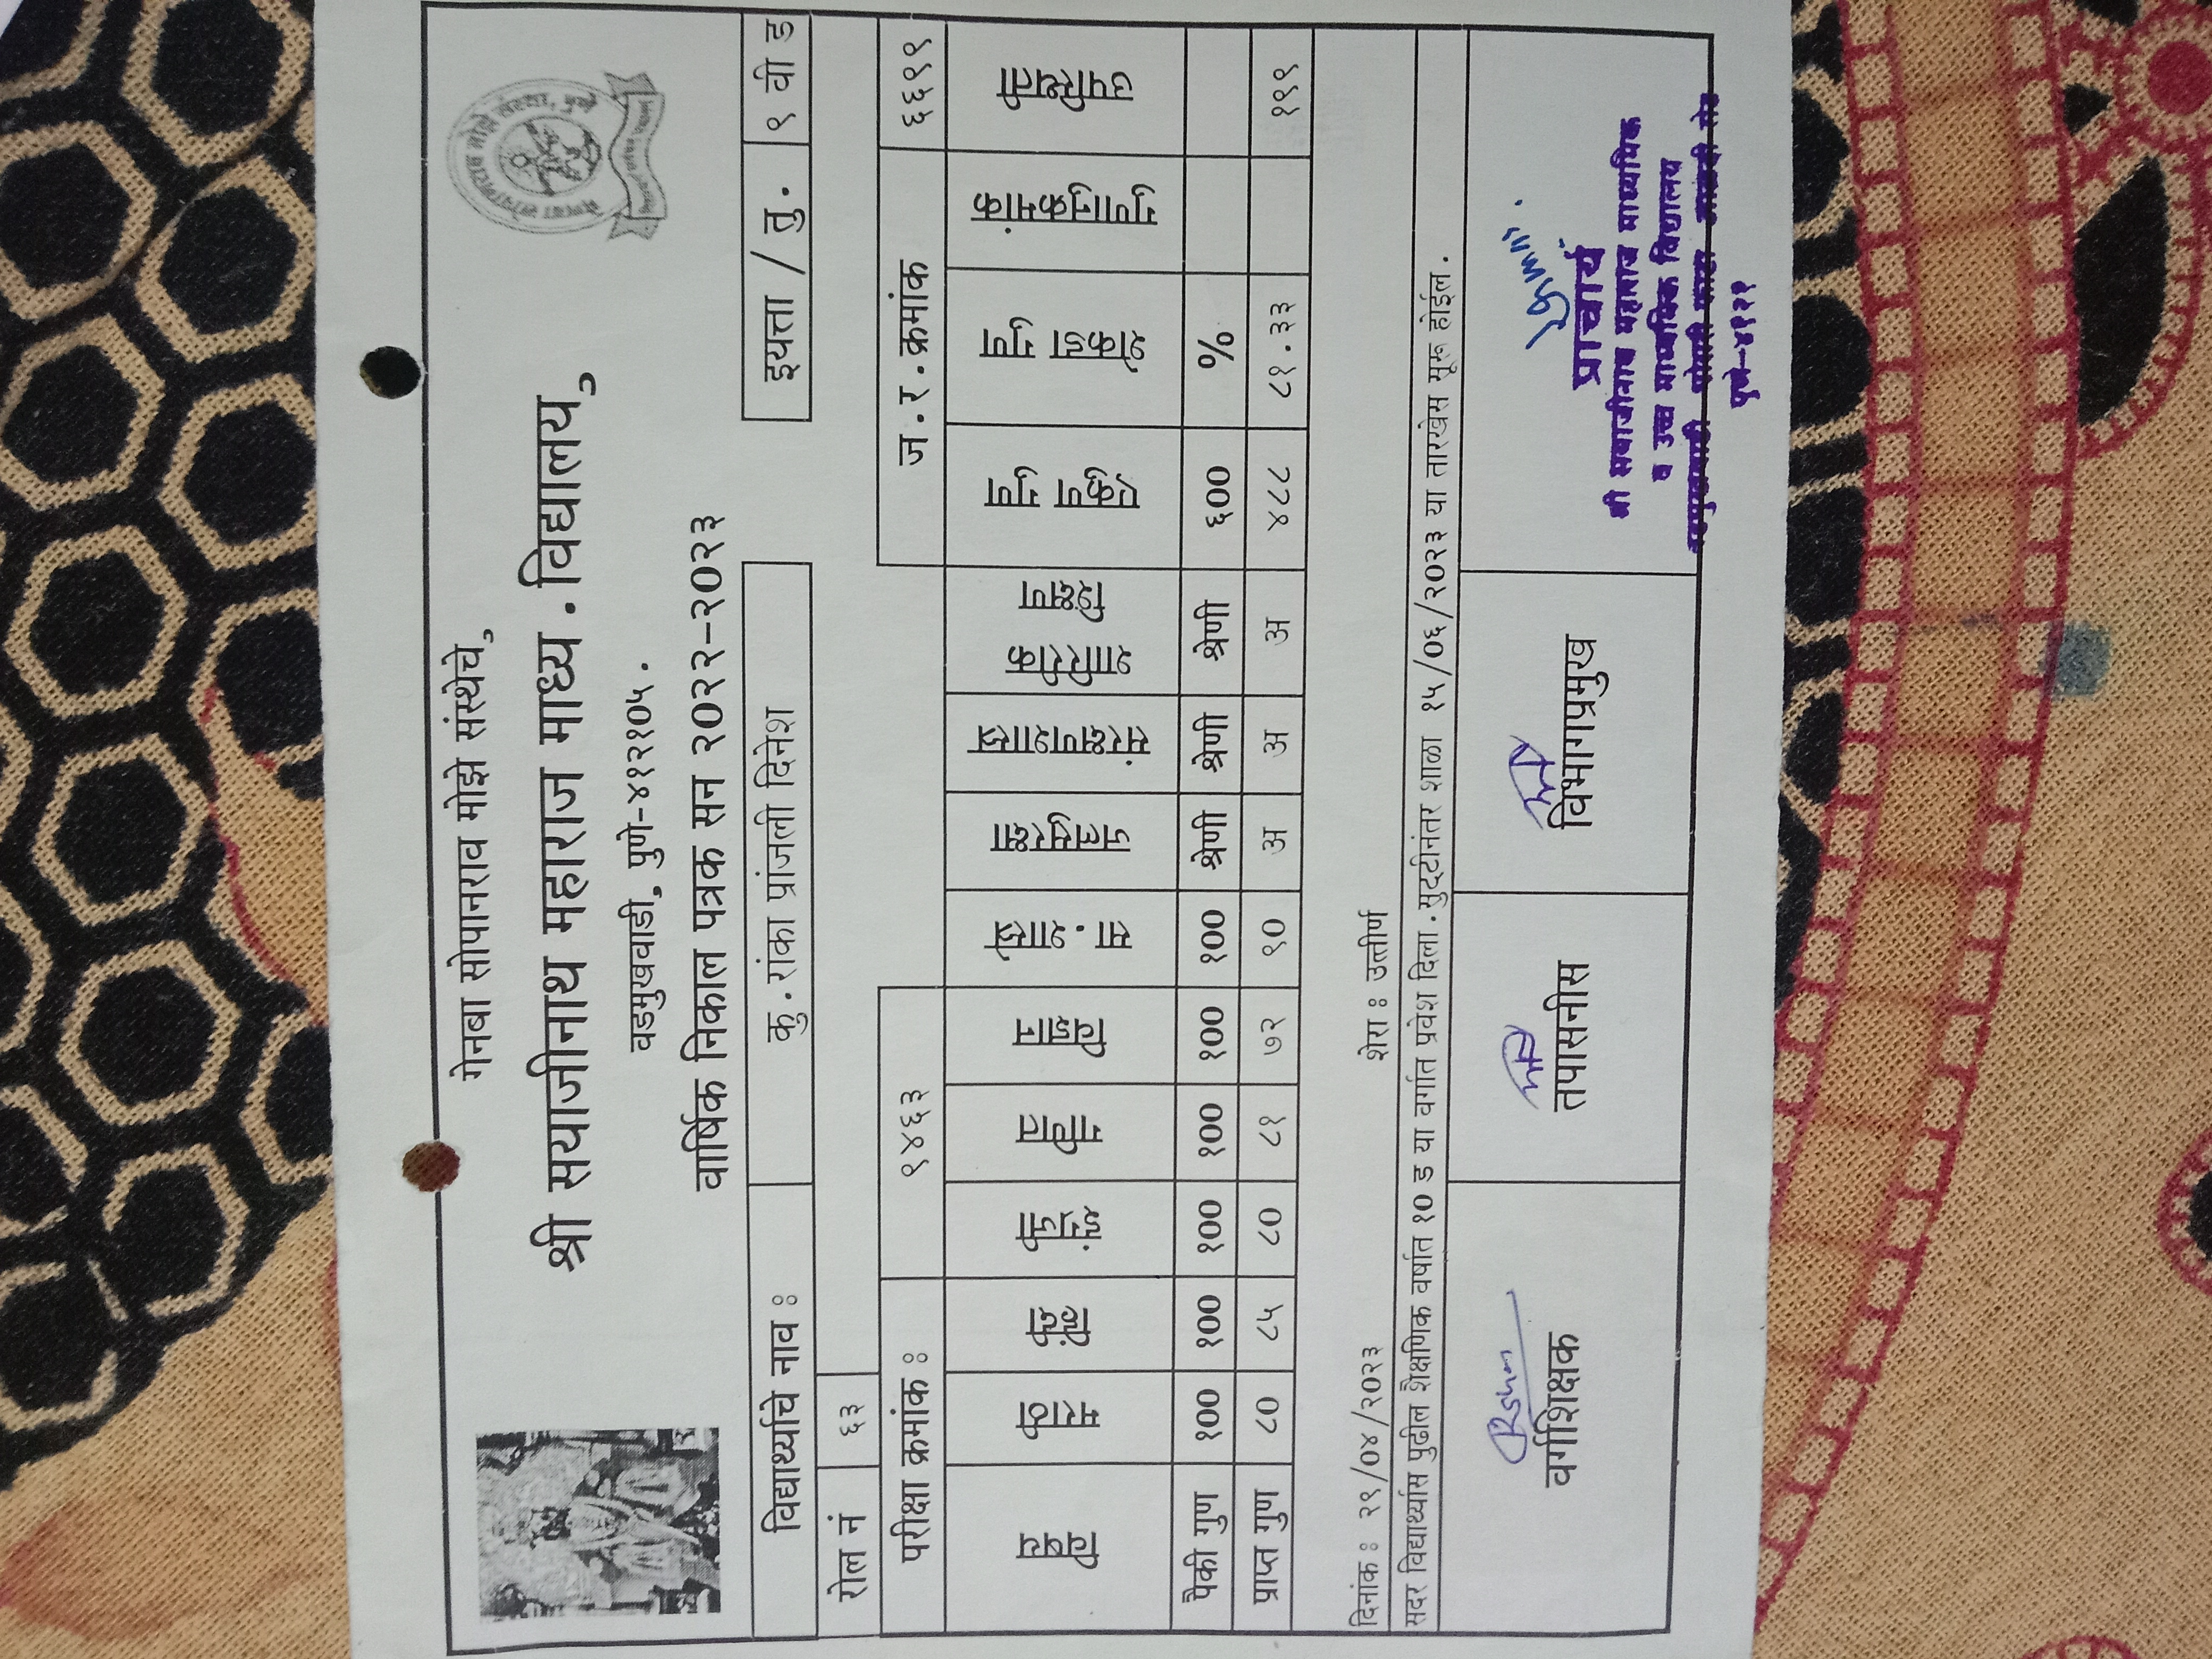 गेनबा सोपानराव मोझे संस्थेचे,
श्री सयाजीनाथ महाराज माध्य.विद्यालय,
वडमुखवाडी, पुणे-४१२१०५.
वार्षिक निकाल पत्रक सन २०२२-२०२३
गेनबा सोपानराव मोझे संस्था, पुणे
विद्यार्थ्याचे नाव : कु.रांका प्रांजली दिनेश इयत्ता / तु. ९ वी ड
रोल नं ६३
परीक्षा क्रमांक : ९४६३ ज.र.क्रमांक ६६९९
विषय मराठी हिंदी इंग्रजी गणित विज्ञान सा.शास्त्रे जलसुरक्षा संरक्षणशास्त्र शारिरीक शिक्षण एकुण गुण शेकडा गुण गुणानुक्रमांक उपस्थिती
पैकी गुण १०० १०० १०० १०० १०० १०० श्रेणी श्रेणी श्रेणी ६०० %
प्राप्त गुण ८० ८५ ८० ८१ ७२ ९० अ अ अ ४८८ ८१.३३ १९९
दिनांक : २९/०४/२०२३ शेरा : उत्तीर्ण
सदर विद्यार्थ्यास पुढील शैक्षणिक वर्षात १० ड या वर्गात प्रवेश दिला.सुट्टीनंतर शाळा १५/०६/२०२३ या तारखेस सुरू होईल.
वर्गशिक्षक तपासनीस विभागप्रमुख
प्राचार्य
श्री सयाजीनाथ महाराज माध्यमिक
व उच्च माध्यमिक विद्यालय